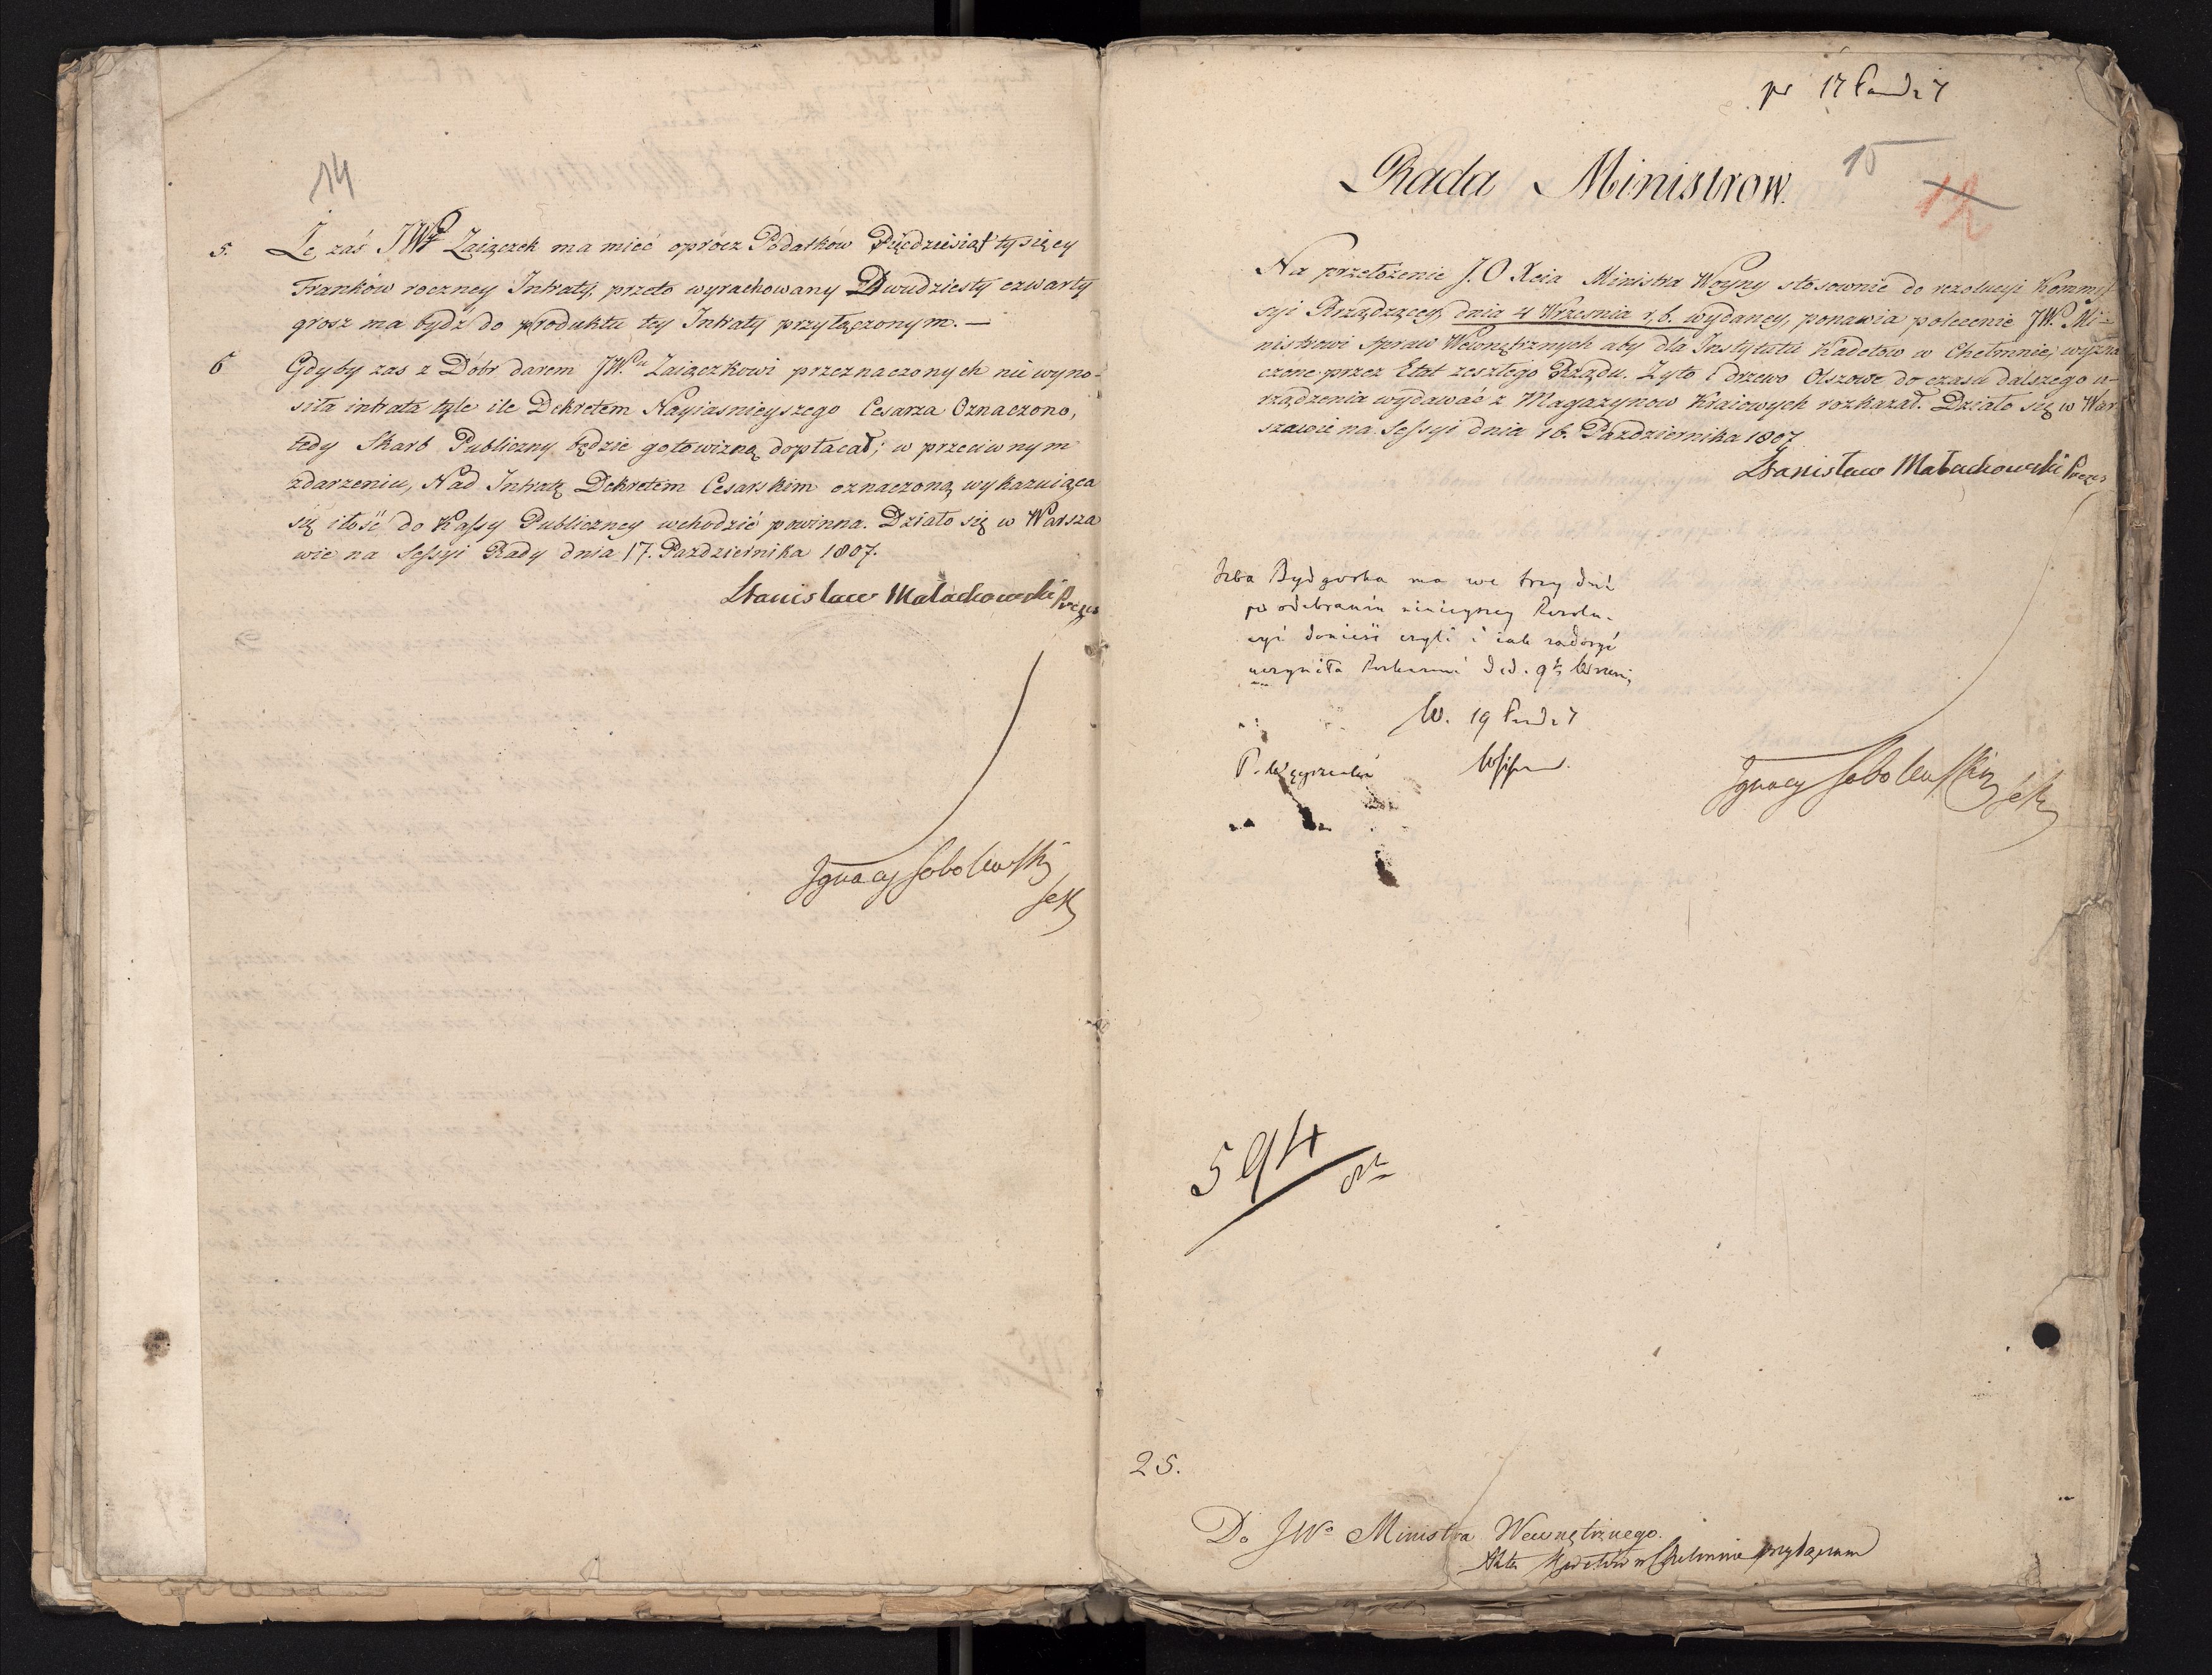 14
5. Że zaś JWP. Zaiączek ma mieć oprócz Podatków Pięćdziesiąt tysięcy
Franków roczney Intraty, przeto wyrachowany Dwudziesty czwarty
grosz ma bydź do produktu tey Intraty przyłączonym. —
6 Gdyby zas z Dóbr darem JW.Pu Zaiączkowi przeznaczonych nie wyno-
siła intrata tyle ile Dekretem Nayiasnieyszego Cesarza Oznaczono,
tedy Skarb Publiczny będzie gotowizną dopłacał; w przeciwnym
zdarzeniu, Nad Intratę Dekretem Cesarskim oznaczoną wykazuiąca
się ilość do Kassy Publiczney wchodzić powinna. Działo się w Warsza
wie na Sessyi Rady dnia 17. Pazdziernika 1807.
Stanisław Małachowski Prezes
Ignacy Sobolewski
Sek
pr 17 Paźd 7
15
12
Rada Ministrow.
Na przełożenie J.O Xcia Ministra Woyny stosownie do rezolucyi Kommis
syi Rządzącey, dnia 4 Września r. b. wydaney, ponawia polecenie JW. Mi-
nistrowi Spraw Wewnętrznych aby dla Instytutu Kadetow w Chełmnie, wyzna
czone przez Etat zeszłego Rządu. Zyto i drzewo Olszowe do czasu dalszego u-
rządzenia wydawać z Magazynow Kraiowych rozkazał. Działo się w War
szawie na Sessyi dnia 16. Pazdziernika 1807
Stanisław Małachowski Prezes
Izba Bydgoska ma we trzy dni
po odebraniu ninieyszey Rezolu-
cyi donieść czyli i iak zadosyć
uczyniła
W. 19 Paźd 7
Ignacy Sobolewski Sek
594
8br
25.
Do JWo Ministra Wewnętrznego.
Akta Kadetów w Chełmnie